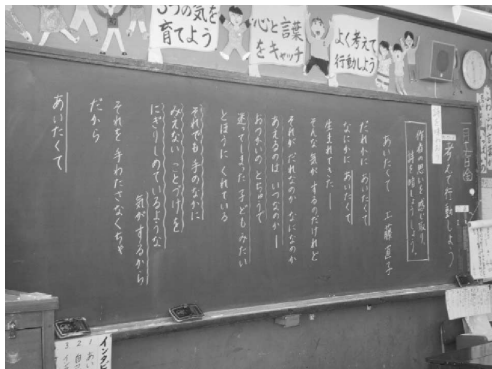 3つの気を
育てよう
心と言葉
をキャッチ
よく考えて
行動しよう
考えて行動しよう
作者の思いを感じ取り、
詩を暗しょうしよう。
あいたくて 工藤直子
だれかに あいたくて
なにかに あいたくて
生まれてきた―
そんな 気が するのだけれど
それが だれなのか なになのか
あえるのは いつなのか―
おつかいの とちゅうで
迷ってしまった 子どもみたい
とほうに くれている
それでも 手のなかに
みえない ことづけを
にぎりしめているような
気がするから
それを 手わたさなくちゃ
だから
あいたくて
インタビ
1 あい